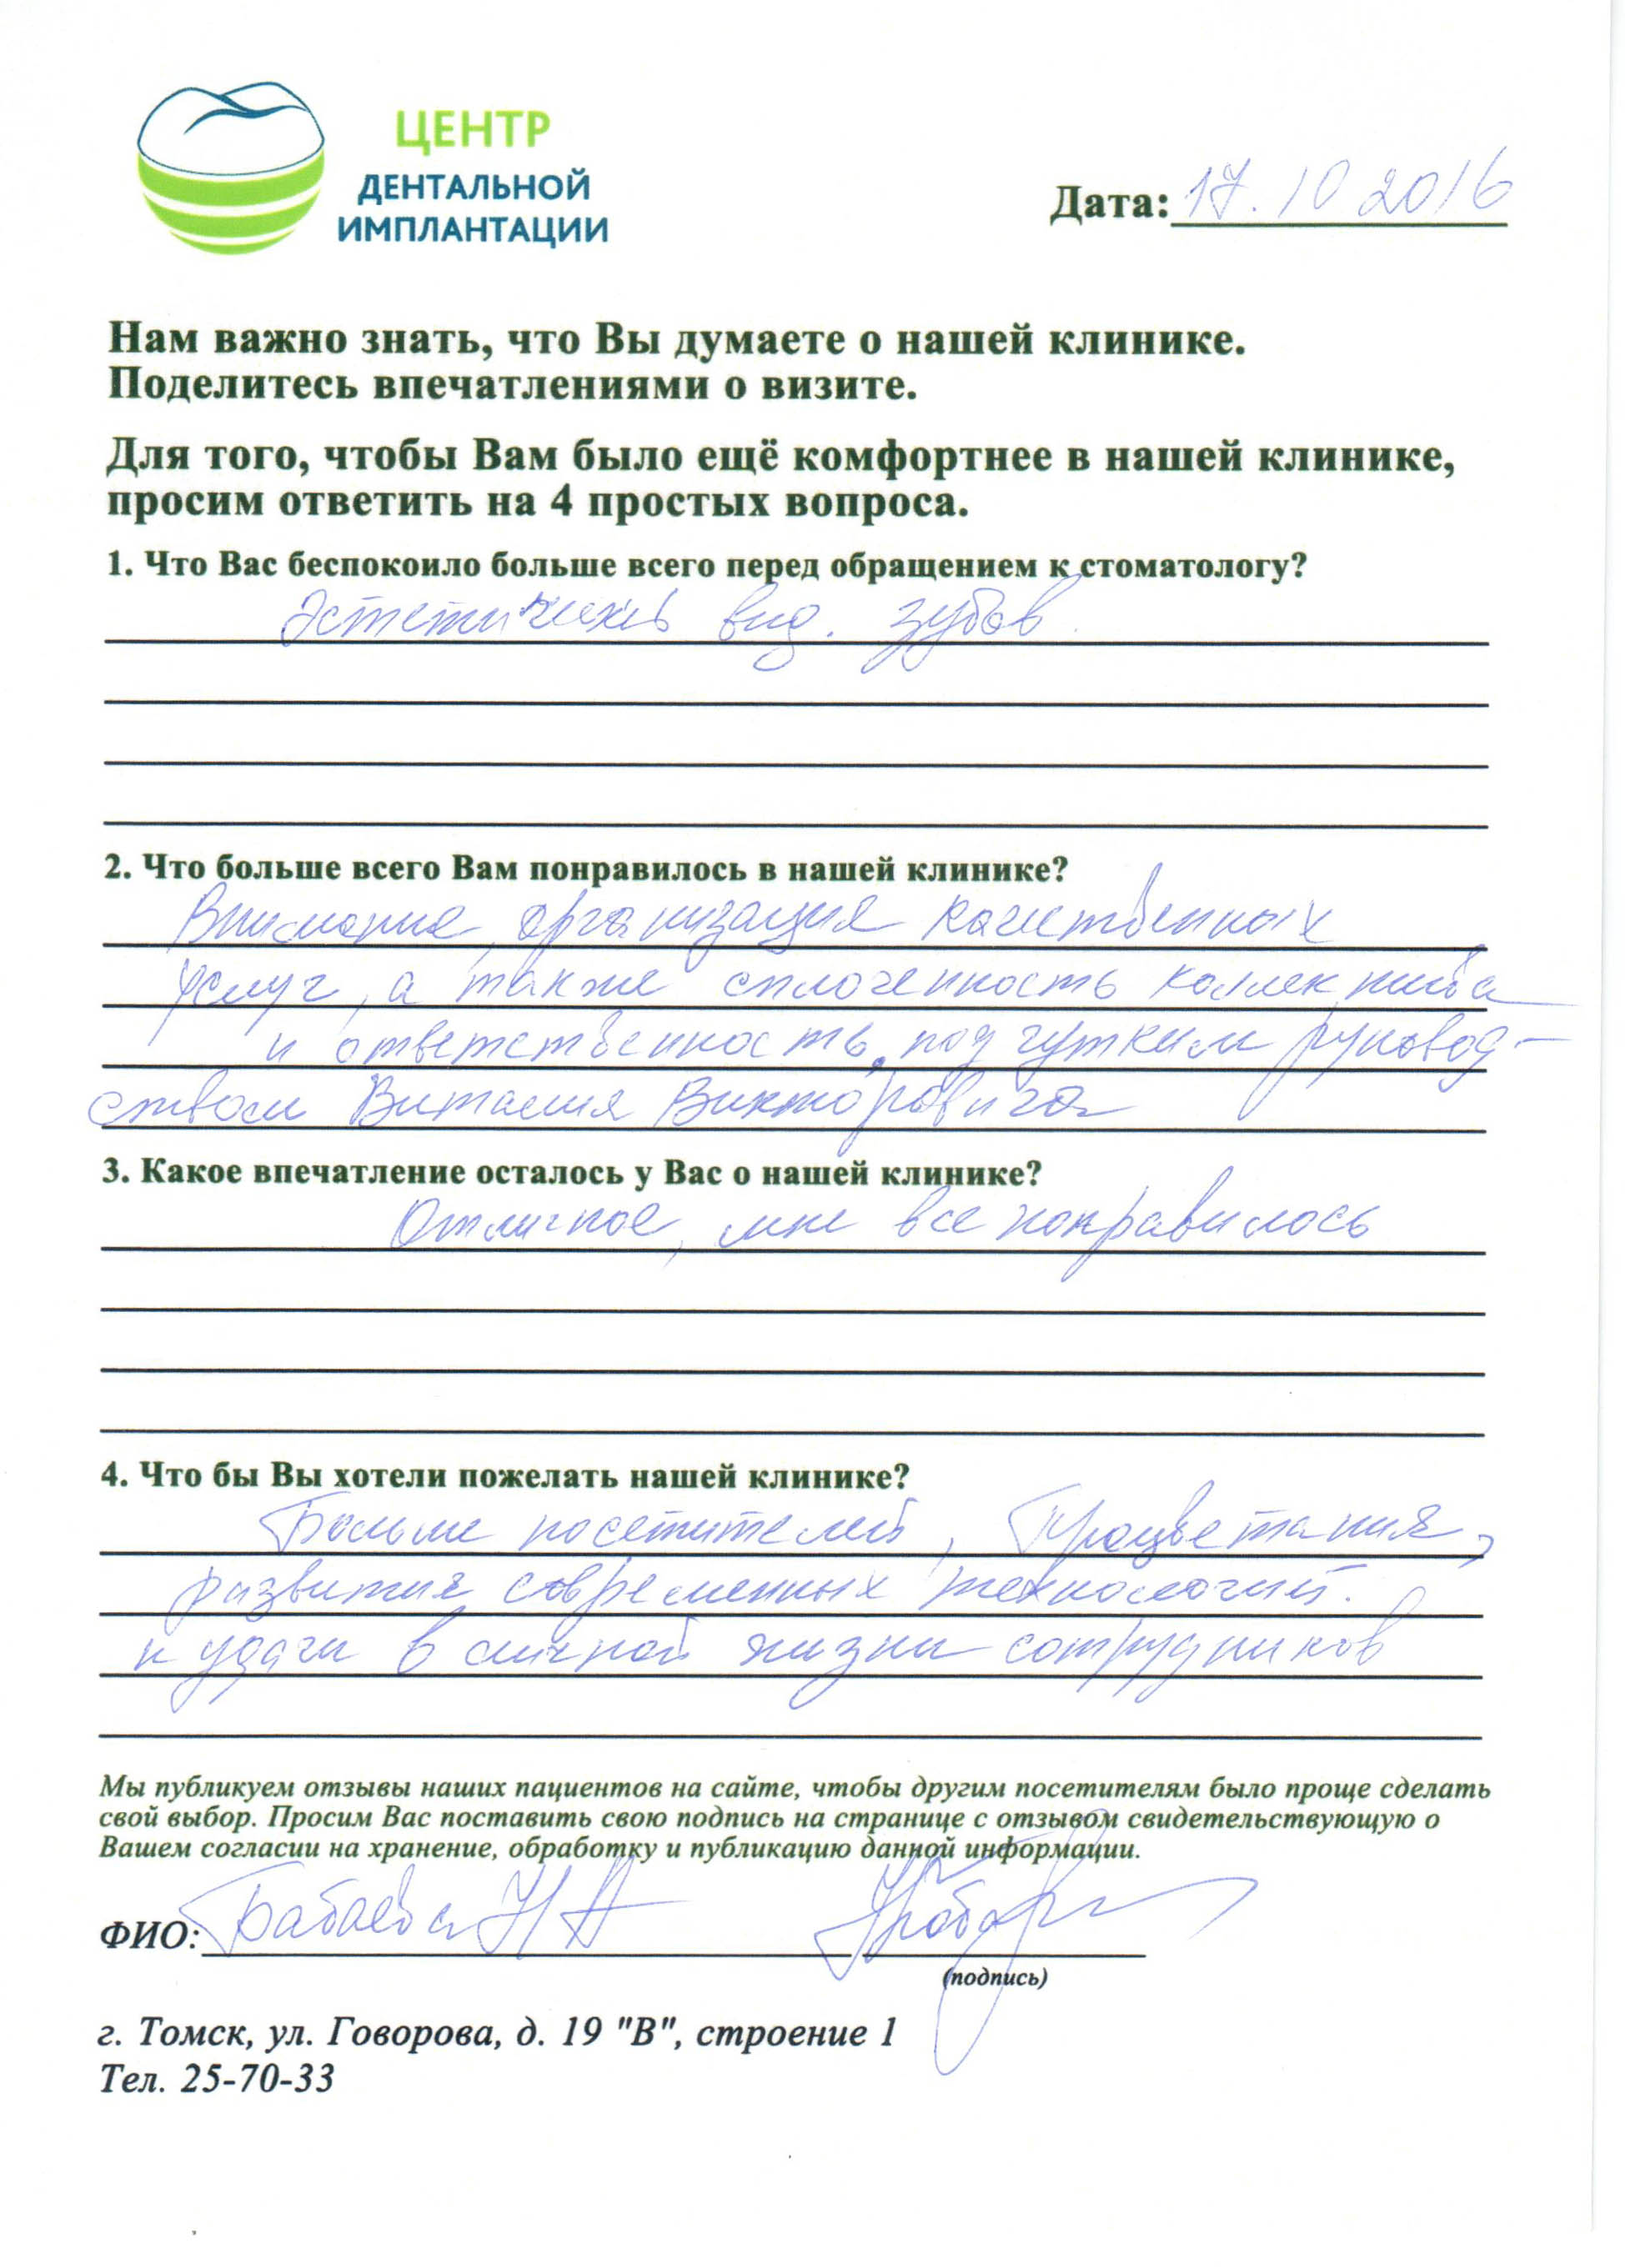 ЦЕНТР
ДЕНТАЛЬНОЙ
ИМПЛАНТАЦИИ
Дата: 17.10 2016
Нам важно знать, что Вы думаете о нашей клинике.
Поделитесь впечатлениями о визите.
Для того, чтобы Вам было ещё комфортнее в нашей клинике,
просим ответить на 4 простых вопроса.
1. Что Вас беспокоило больше всего перед обращением к стоматологу?
вид. зубов
2. Что больше всего Вам понравилось в нашей клинике?
Внимание, организация качественных
услуг, а также сплоченность коллектива
и ответственность, под чутким руковод-
ством Виталия Викторовича
3. Какое впечатление осталось у Вас о нашей клинике?
Отличное, мне все понравилось
4. Что бы Вы хотели пожелать нашей клинике?
Больше посетителей, Процветания,
развития современных технологий.
и удачи в личной жизни сотрудников
Мы публикуем отзывы наших пациентов на сайте, чтобы другим посетителям было проще сделать
свой выбор. Просим Вас поставить свою подпись на странице с отзывом свидетельствующую о
Вашем согласии на хранение, обработку и публикацию данной информации.
ФИО: Бабаева Н А
(подпись)
г. Томск, ул. Говорова, д. 19 "В", строение 1
Тел. 25-70-33